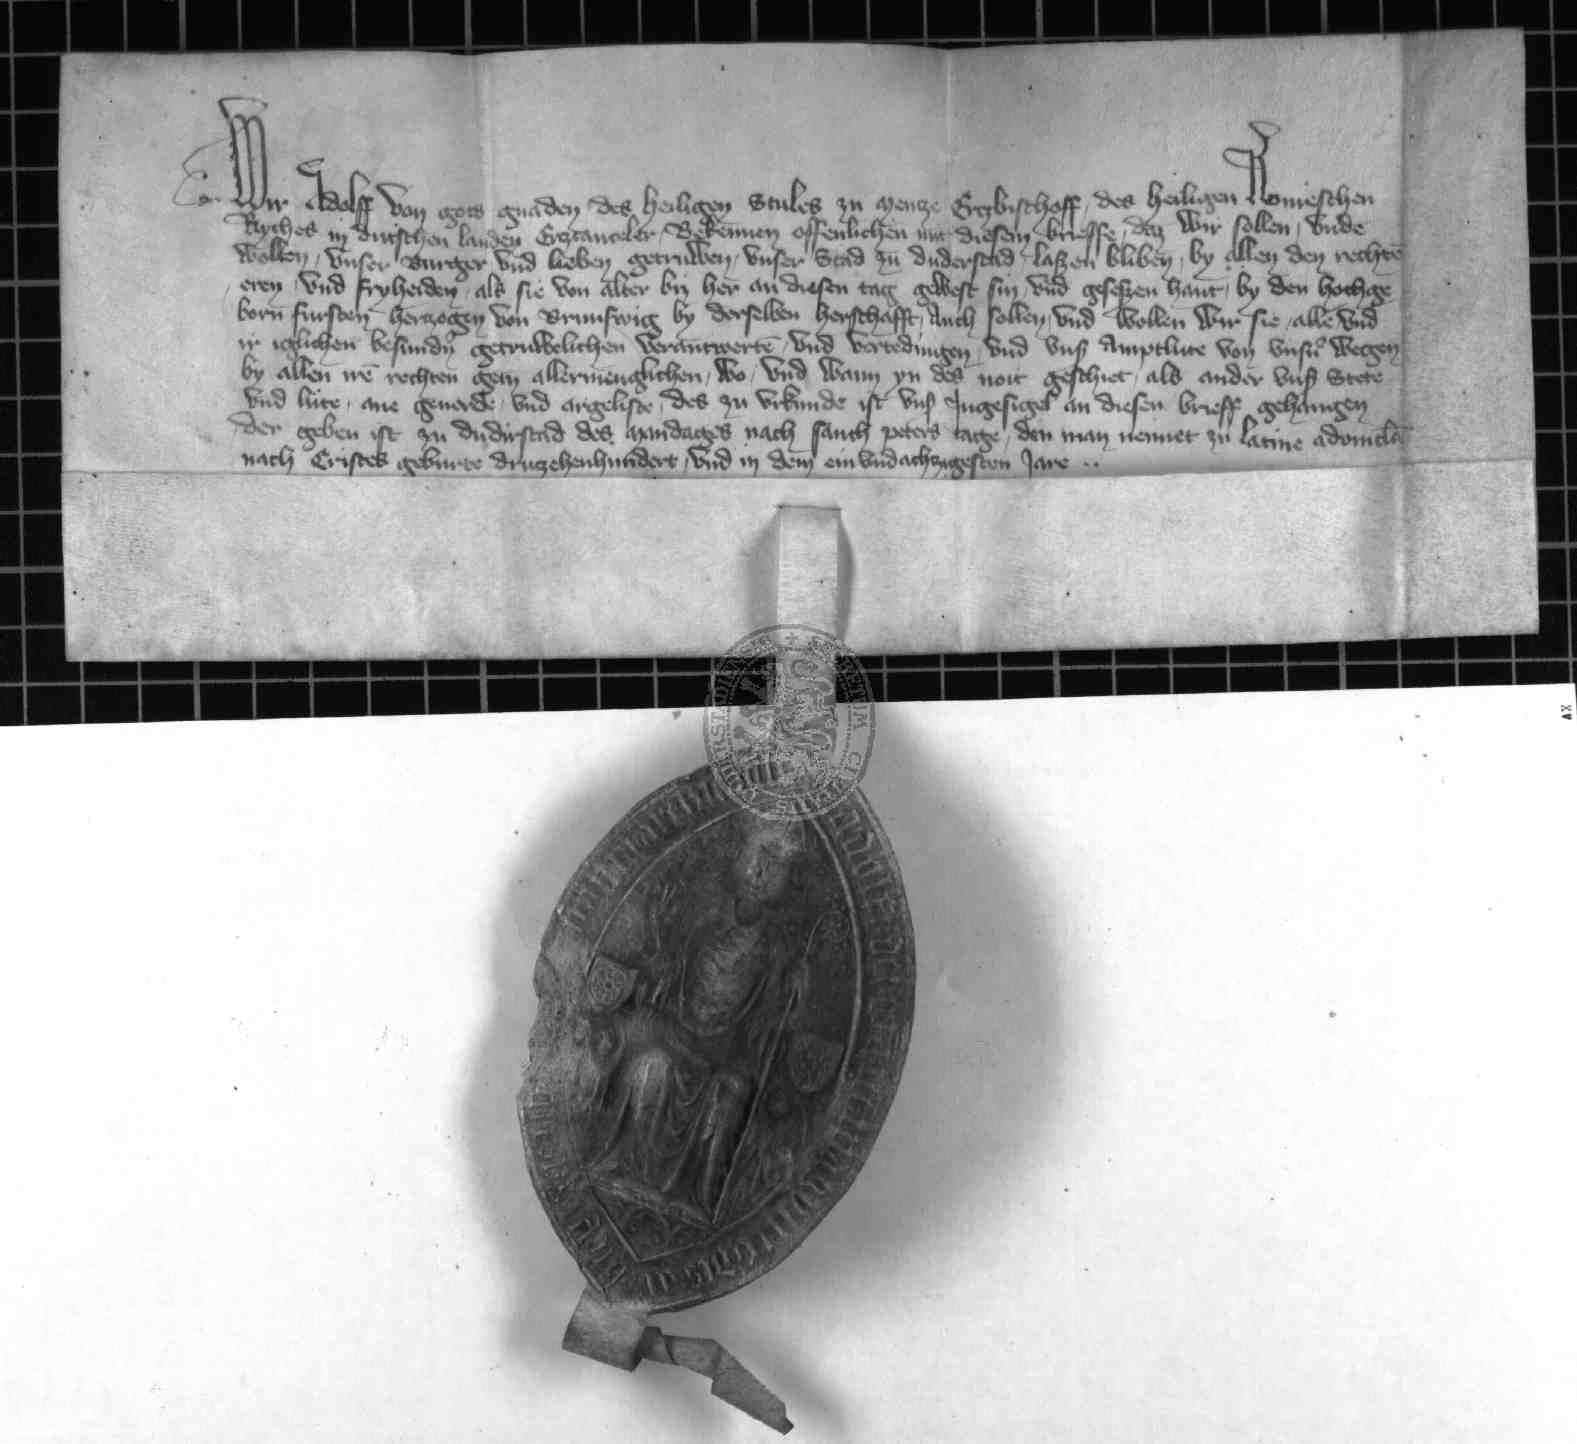 Wir Adolff von gots gnaden des heiligen Stules zu Mentze Ertzbischoff, des heiligen Romieschen
Ryches in dutschen landen Ertzcanceler, Bekennen offenlichen mit diesem brieffe, daz wir sollen, vnde
wollen, vnser Burger vnd lieben getruwen, vnser Stad zu duderstad laszen bliben, by allen den rechte
eren, vnd fryheiden, als sie von alter biz her an diesen tag gewest sin, vnd geseszen hant, by den hochge
born fursten hertzogen von Brunswig by derselben herschafft, Auch sollen, vnd wollen wir sie, alle vnd
ir iglichen besundn getruwelichen verantwerte, vnd vertedingen, vnd vns Amptlute von vnsn wegen
by allen ire rechten gein allermenglichen, wo, vnd wann yn des noit geschiet, als ander vns Stete
vnd lute, ane geuerde, vnd argeliste, des zu vrkunde ist vns Ingesigel an diesen brieff gehangen
Der geben ist zu dudirstad des Mandages nach sanch peters tage, den man nennet zu latine advincla
nach Cristes geburte druzehenhundert, vnd in dem ein vnd achtzigesten Jare ..